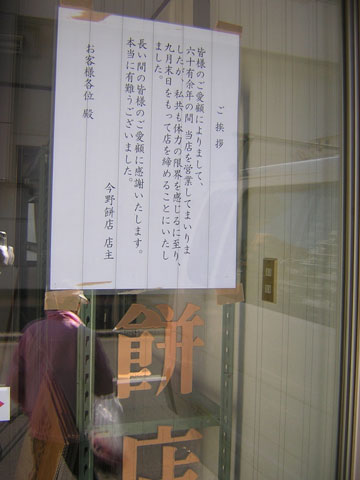 ご挨拶
皆様のご愛顧によりまして、
六十有余年の間 当店を営業してまいりま
したが、私共も体力の限界を感じるに至り、
九月末日をもって店を締めることにいたし
ました。
長い間の皆様のご愛顧に感謝いたします。
本当に有難うございました。
今野餅店 店主
お客様各位 殿
餅店